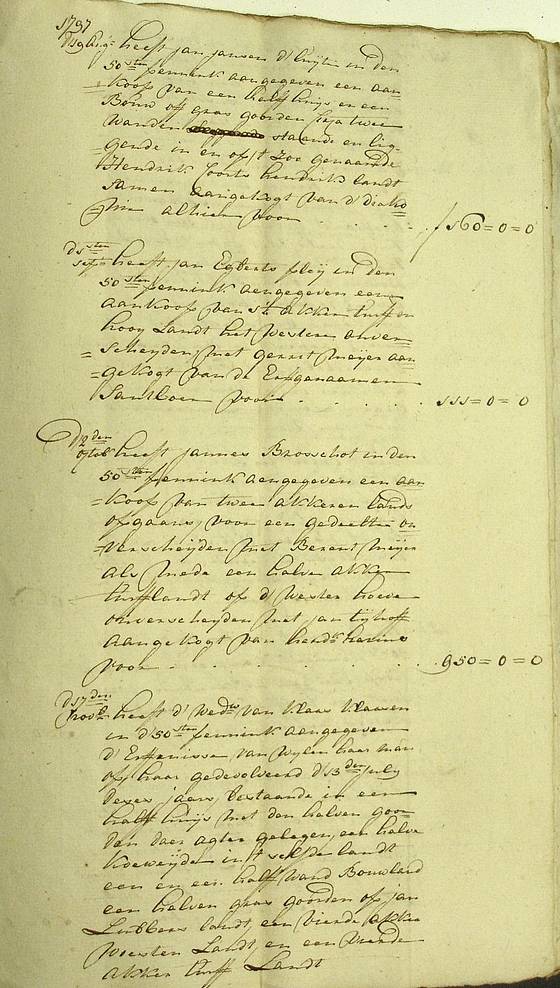 1797
d' 19 Aug: heeft jan jansen d' luijtin in den
50 sten pennink aangegeven een aan
= koop van een halff huijs en een
Bouw off gras goorden seja twee
wanden staende en lig
= gende in en op 't Zoo genaamde
Hendrik Joorts hendriks landt
samen aangekogt van d' diako
= nie alhier voor . . . f 560 = 0 = 0
d 5 sten sep heeft jan Egberts fleij in den
50 sten pennink aangegeven een
aankoop van akker turff en
hooy Landt het Westen onver
= scheyden met gerrit meijer aan
= gekogt van de Erffgenaamen
Santloer voor . . . 555 = 0 = 0
d 2 den octob heeft jannes Brosschot in den
50 sten pennink aengegeven een aan
= koop van twee akkeren lands
opgaans, voor een gedeelten on
= verscheijden met Berent meijer
als mede een halve akker
turfflandt op d' Wester hoeve
onverscheyden met jan tijhoff
aangekogt van hend k havino
voor . . . 950 = 0 = 0
d 17 den Novb heeft d' Wed we van Klaas Klaasen
in d' 50 sten pennink aangegeven
d' Erffenisse van Wijlen haar man
op haar gedevolveerd d' 13 den July
deses jaars, bestaande in een
halff huijs met den halven goor
den daer agter gelegen, een halve
koeweijde in 't selfde landt
een en een halff wand Bouwland
een halven gras goorden op jan
Lubbers landt, een vierde akker
woesten Landt, en een vierde
akker turff Landt